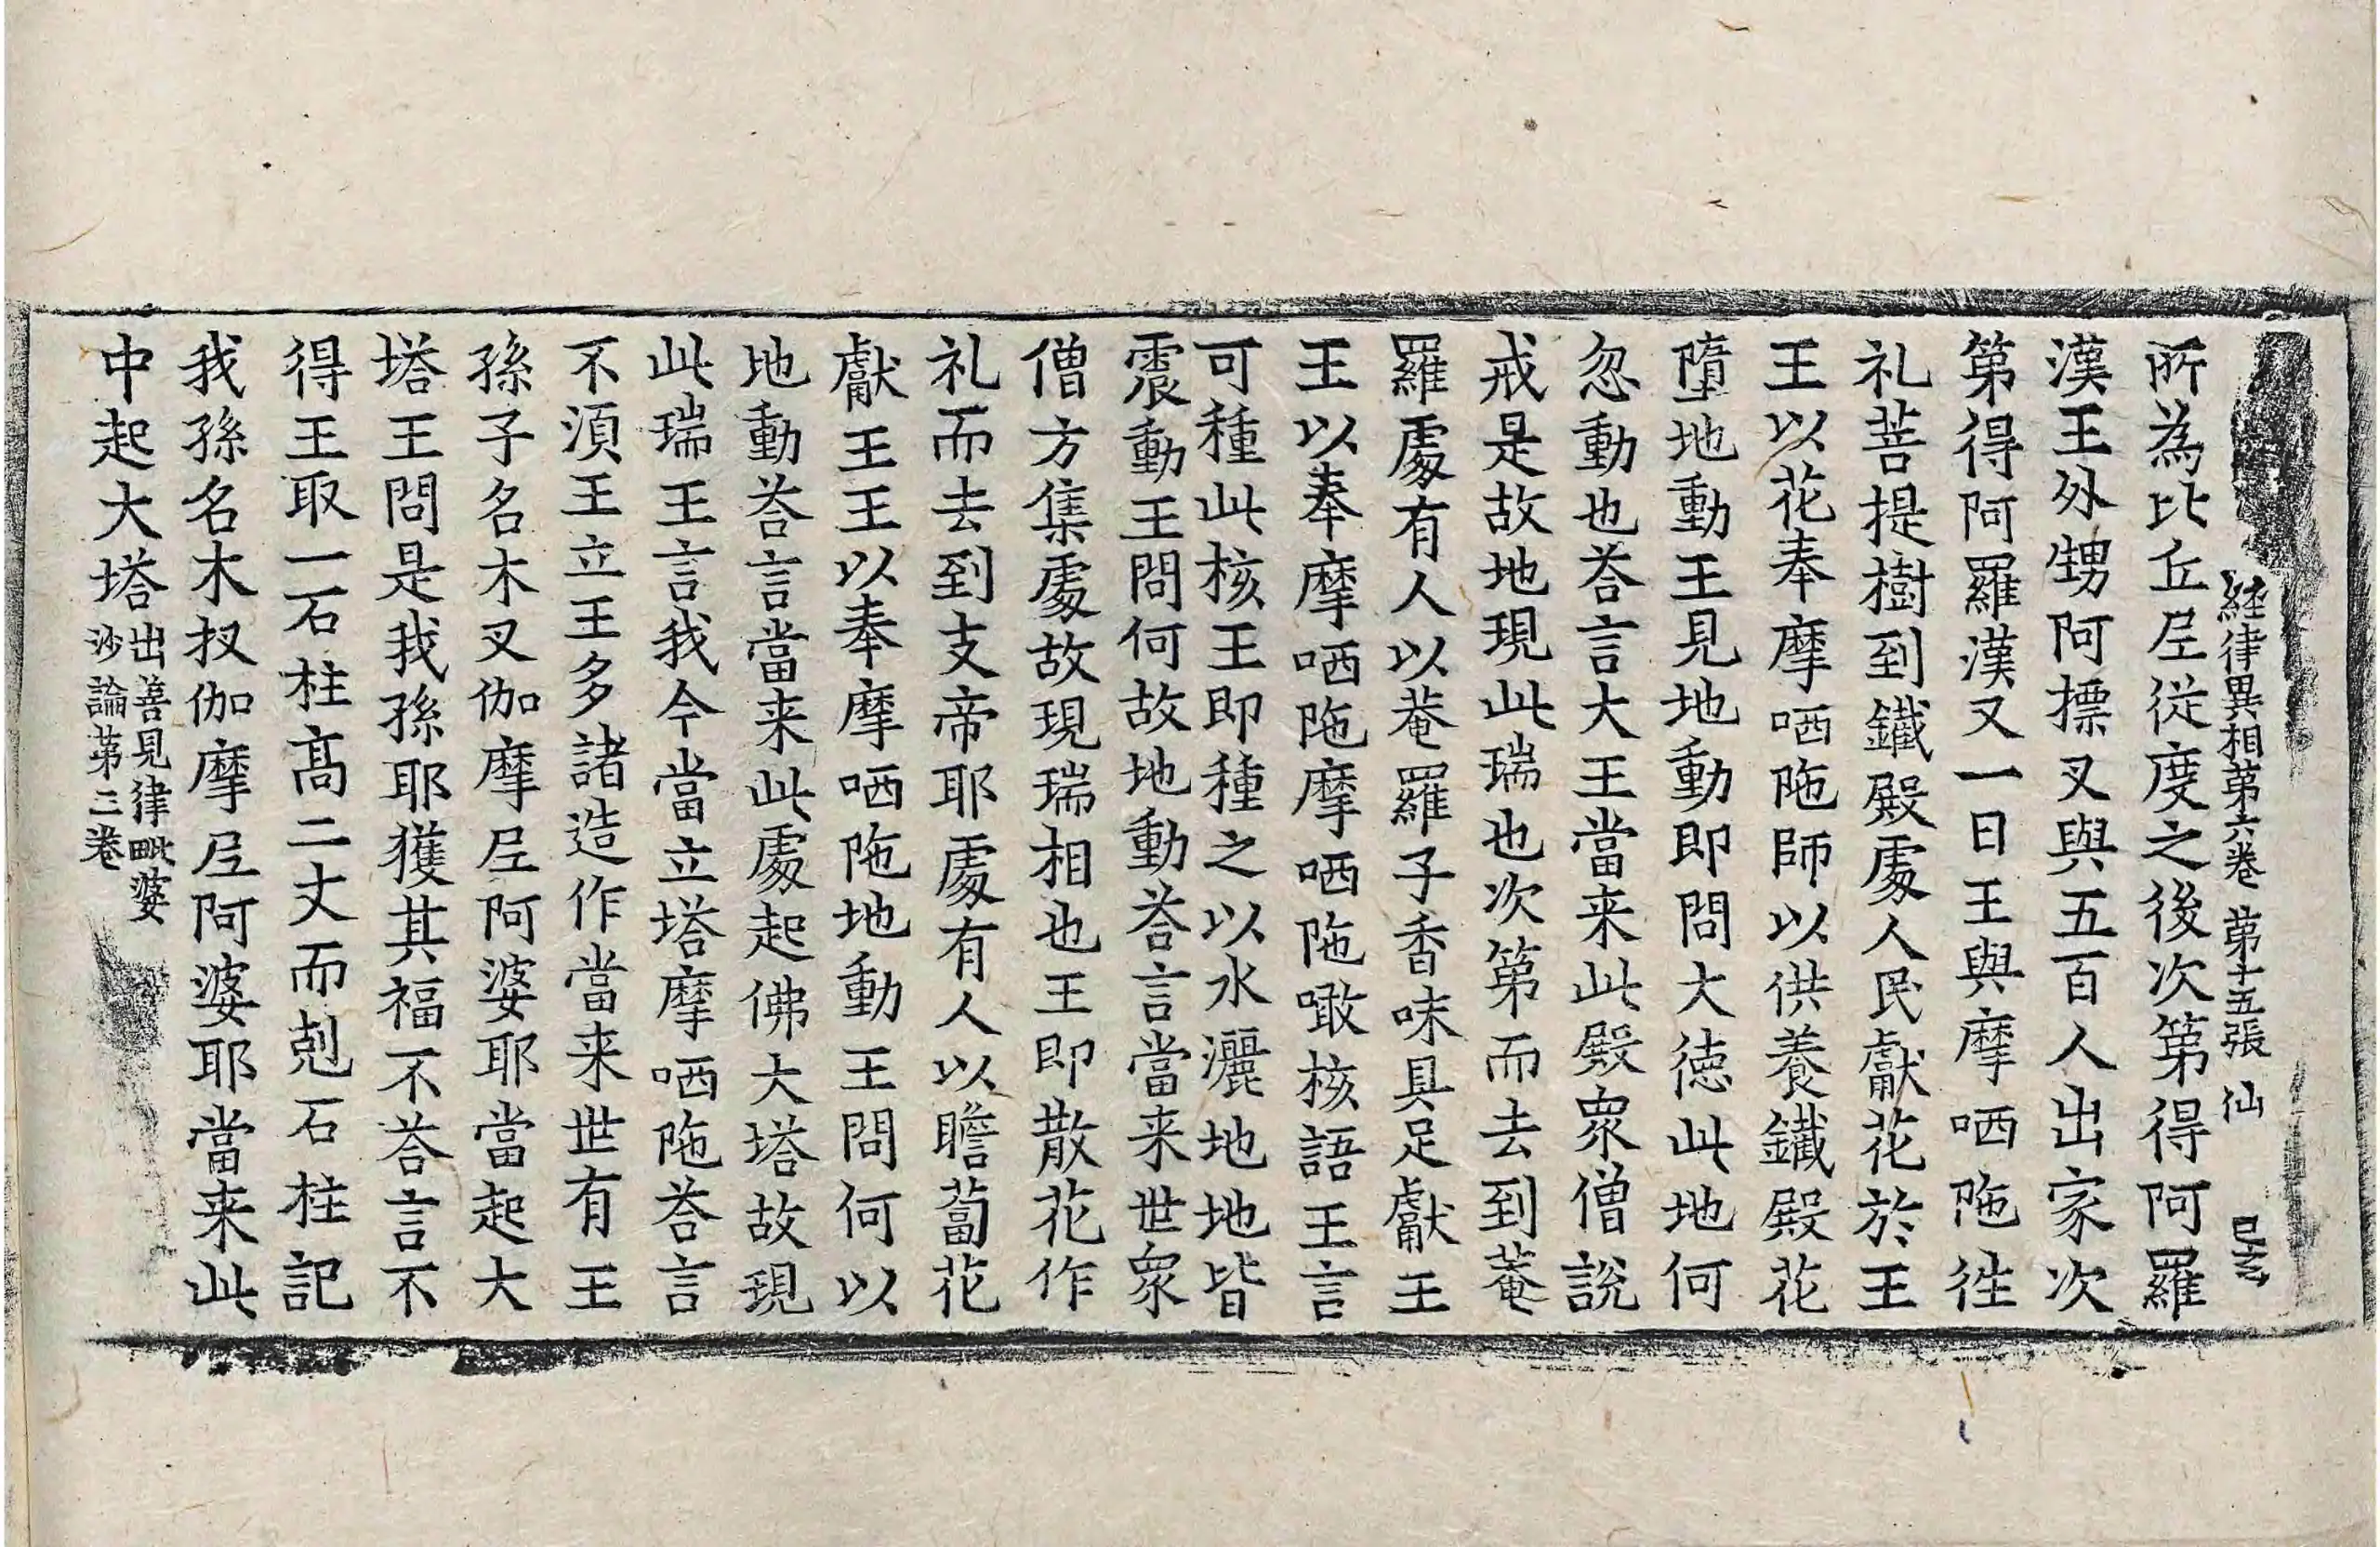 経律異相第六卷 第十五張 仙
所為比丘尼從度之後次第得阿羅
漢王外甥阿摽叉與五百人出家次
第得阿羅漢又一日王與摩哂陁徃
礼菩提樹到鐵殿處人民獻花於王
王以花奉摩哂陁師以供養鐵殿花
墮地動王見地動即問大徳此地何
忽動也荅言大王當来此殿衆僧說
戒是故地現此瑞也次第而去到菴
羅處有人以菴羅子香味具足獻王
王以奉摩哂陁摩哂陁噉核語王言
可種此核王即種之以水灑地地皆
震動王問何故地動荅言當来世衆
僧方集處故現瑞相也王即散花作
礼而去到支帝耶處有人以瞻蔔花
獻王王以奉摩哂陁地動王問何以
地動荅言當来此處起佛大塔故現
此瑞王言我今當立塔摩哂陁荅言
不湏王立王多諸造作當来世有王
孫子名木叉伽摩尼阿婆耶當起大
塔王問是我孫耶獲其福不荅言不
得王取一石柱高二丈而剋石柱記
我孫名木扠伽摩尼阿婆耶當来此
中起大塔出善見律毗婆
沙論第三卷